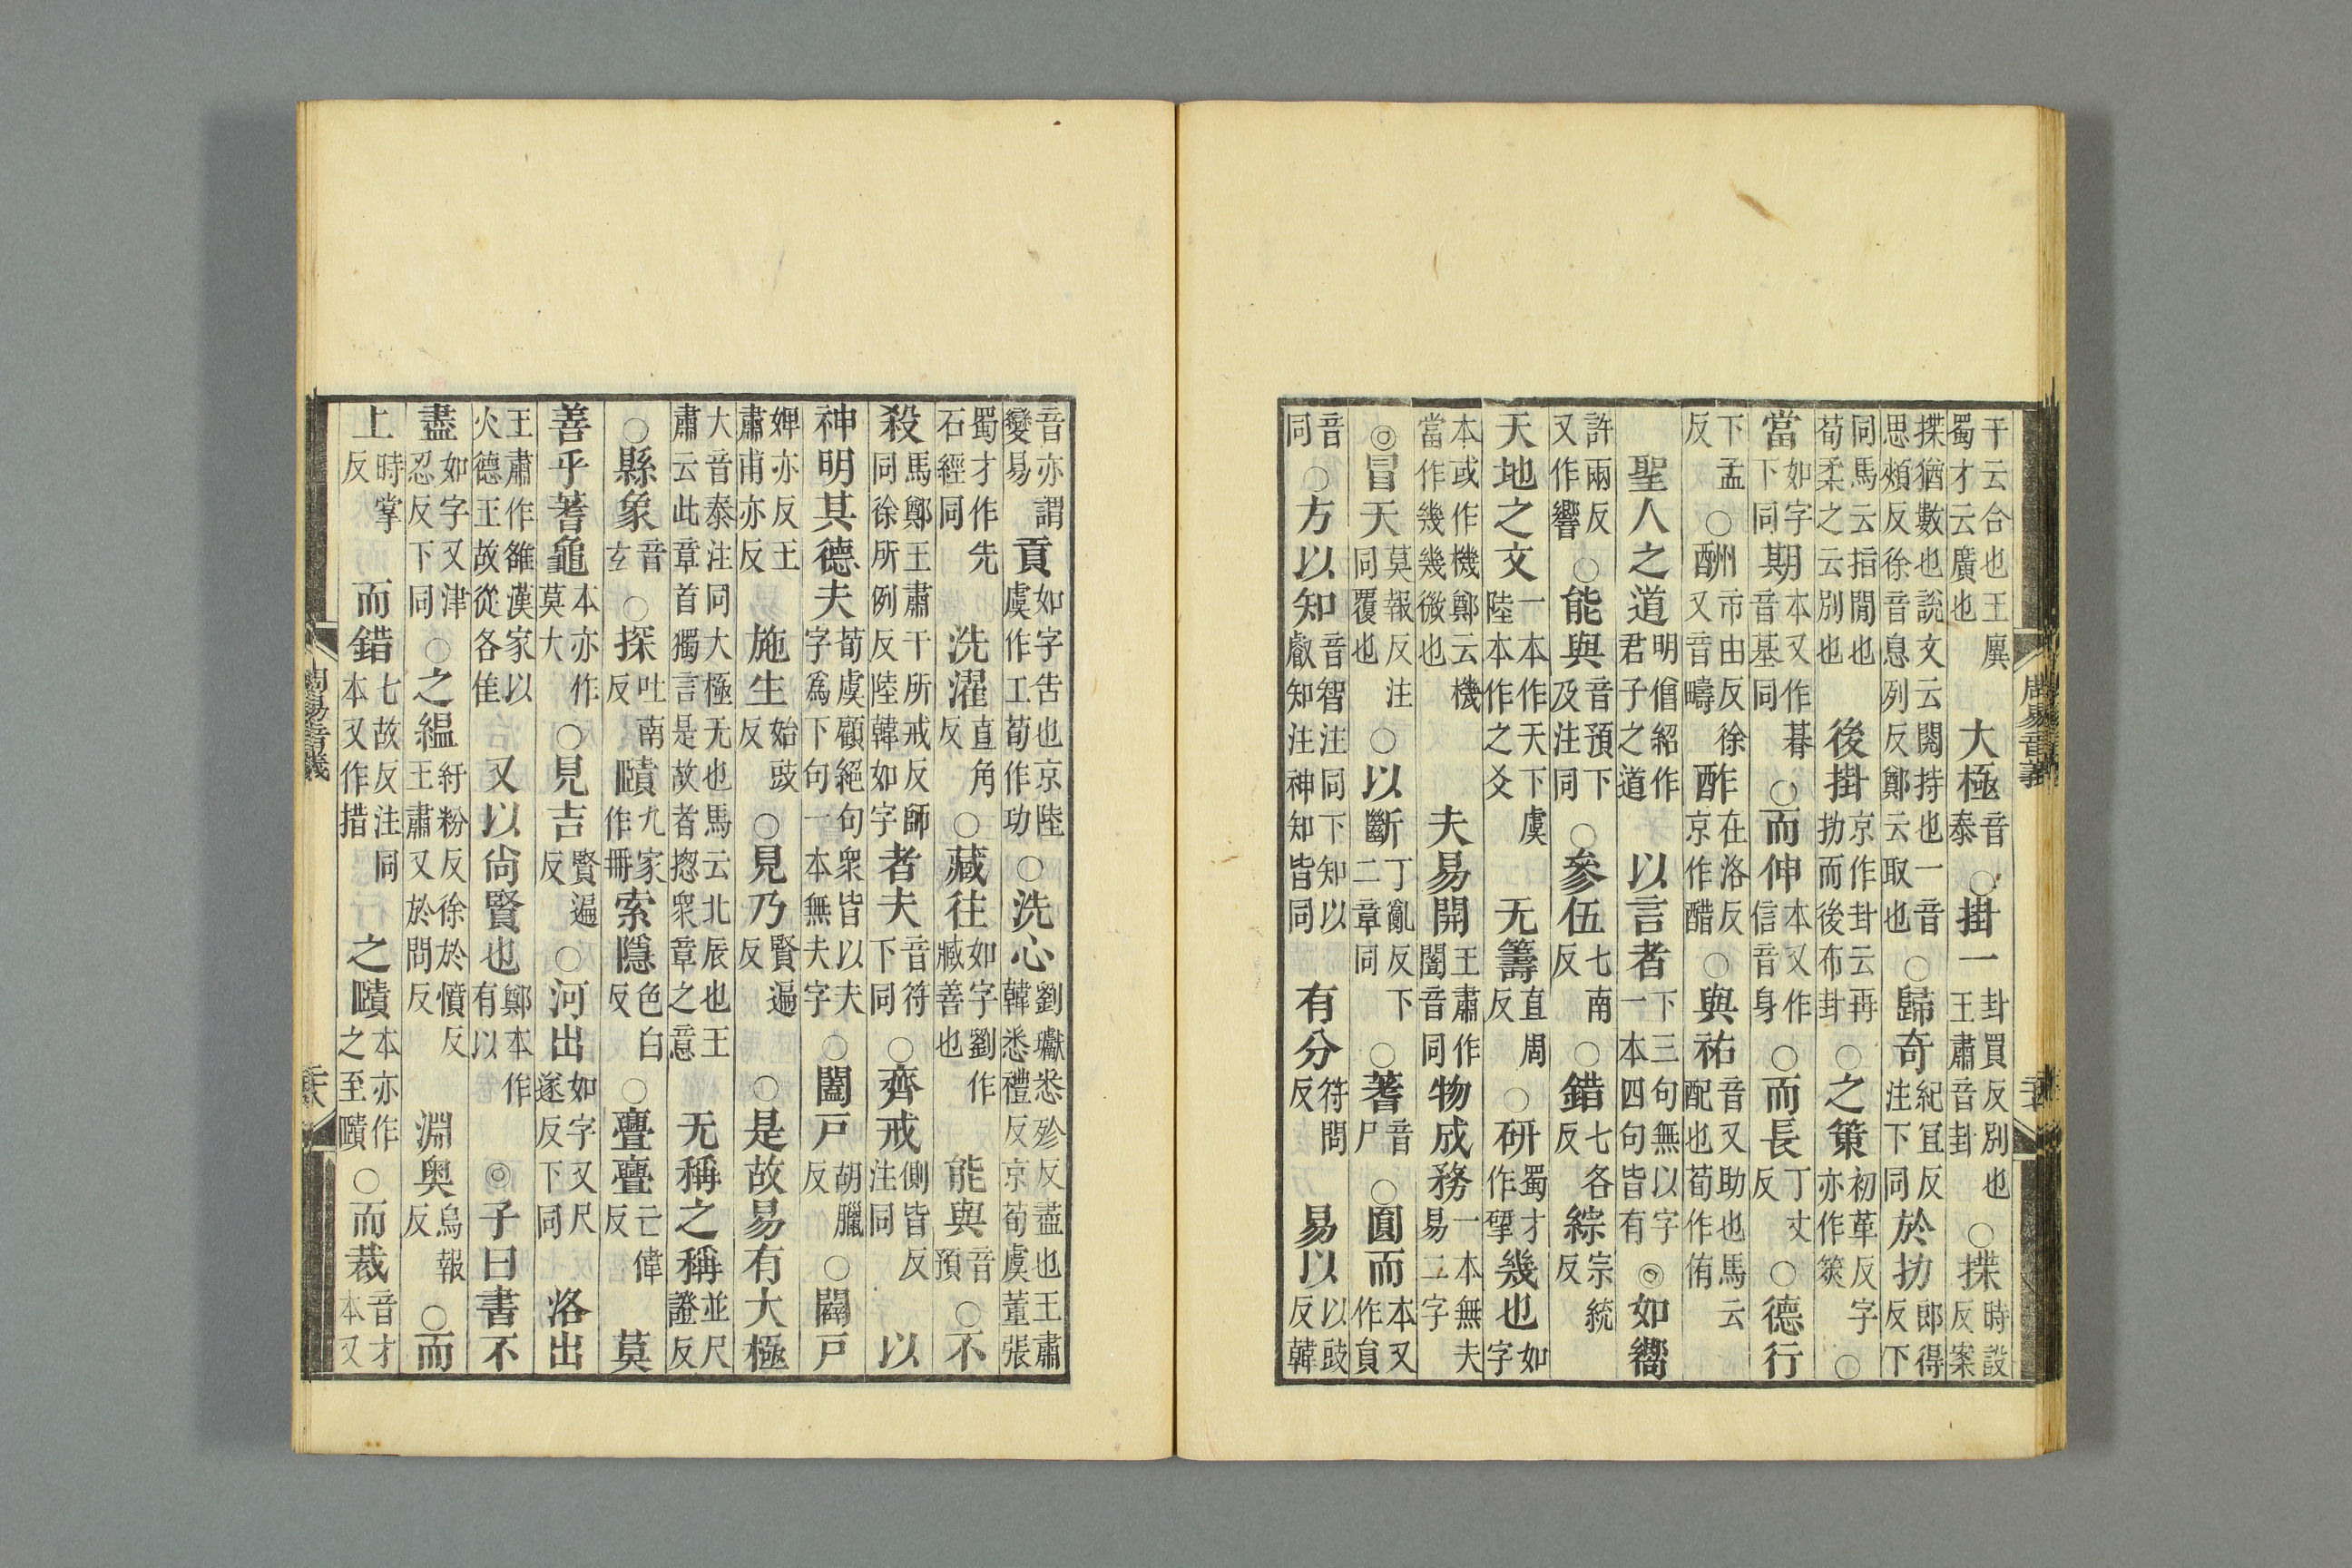 干云合也王廙
蜀才云廣也大極音泰○掛一卦買反別也王肅音卦○揲時設反案
揲猶數也說文云閱持也一音思頰反徐音息列反鄭云取也○歸奇紀宜反注下同於扐郎得反下
同馬云指閒也荀柔之云別也後掛京作卦云再扐而後布卦○之策初革反字亦作筴○
當如字下同期本又作朞音基同○而伸本又作信音身○而長丁丈反○德行
下孟反○酬市由反徐又音疇酢在洛反京作醋○與祐音又助也馬云配也荀作侑
聖人之道明僧紹作君子之道以言者下三句無以字一本四句皆有◎如嚮
許兩反又作響○能與音預下及注同○參伍七南反○錯七各反綜宗統反
天地之文一本作天下虞陸本作之爻无籌直周反○研蜀才作揅幾也如字
本或作機鄭云機當作幾幾微也夫易開王肅作闓音同物成務一本無夫易二字
◎冒天莫報反注同覆也○以斷丁亂反下二章同○蓍音尸○圓而本又作員
音同○方以知音智注同下知以叡知注神知皆同有分符問反易以以豉反韓
周易音義
音亦謂變易貢如字告也京陸虞作工荀作功○洗心劉瓛悉殄反盡也王肅韓悉禮反京荀虞董張
蜀才作先石經同洗濯直角反○藏往如字劉作臧善也能與音預○不
殺馬鄭王肅干所戒反師同徐所例反陸韓如字者夫音符下同○齊戒側皆反注同以
神明其德夫荀虞顧絕句衆皆以夫字爲下句一本無夫字○闔戶胡臘反○闢戶
婢亦反王肅甫亦反施生始豉反○見乃賢遍反○是故易有大極
大音泰注同大極无也馬云北辰也王肅云此章首獨言是故者揔衆章之意无稱之稱並尺證反
○縣象音玄○探吐南反賾九家作冊索隱色白反○亹亹亡偉反莫
善乎蓍龜本亦作莫大○見吉賢遍反○河出如字又尺遂反下同洛出
王肅作雒漢家以火德王故從各隹又以尚賢也鄭本作有以◎子曰書不
盡如字又津忍反下同○之縕紆粉反徐於憤反王肅又於問反淵奥烏報反○而
上時掌反而錯七故反注同本又作措之賾本亦作之至賾○而裁音才本又
周易音義
二十六